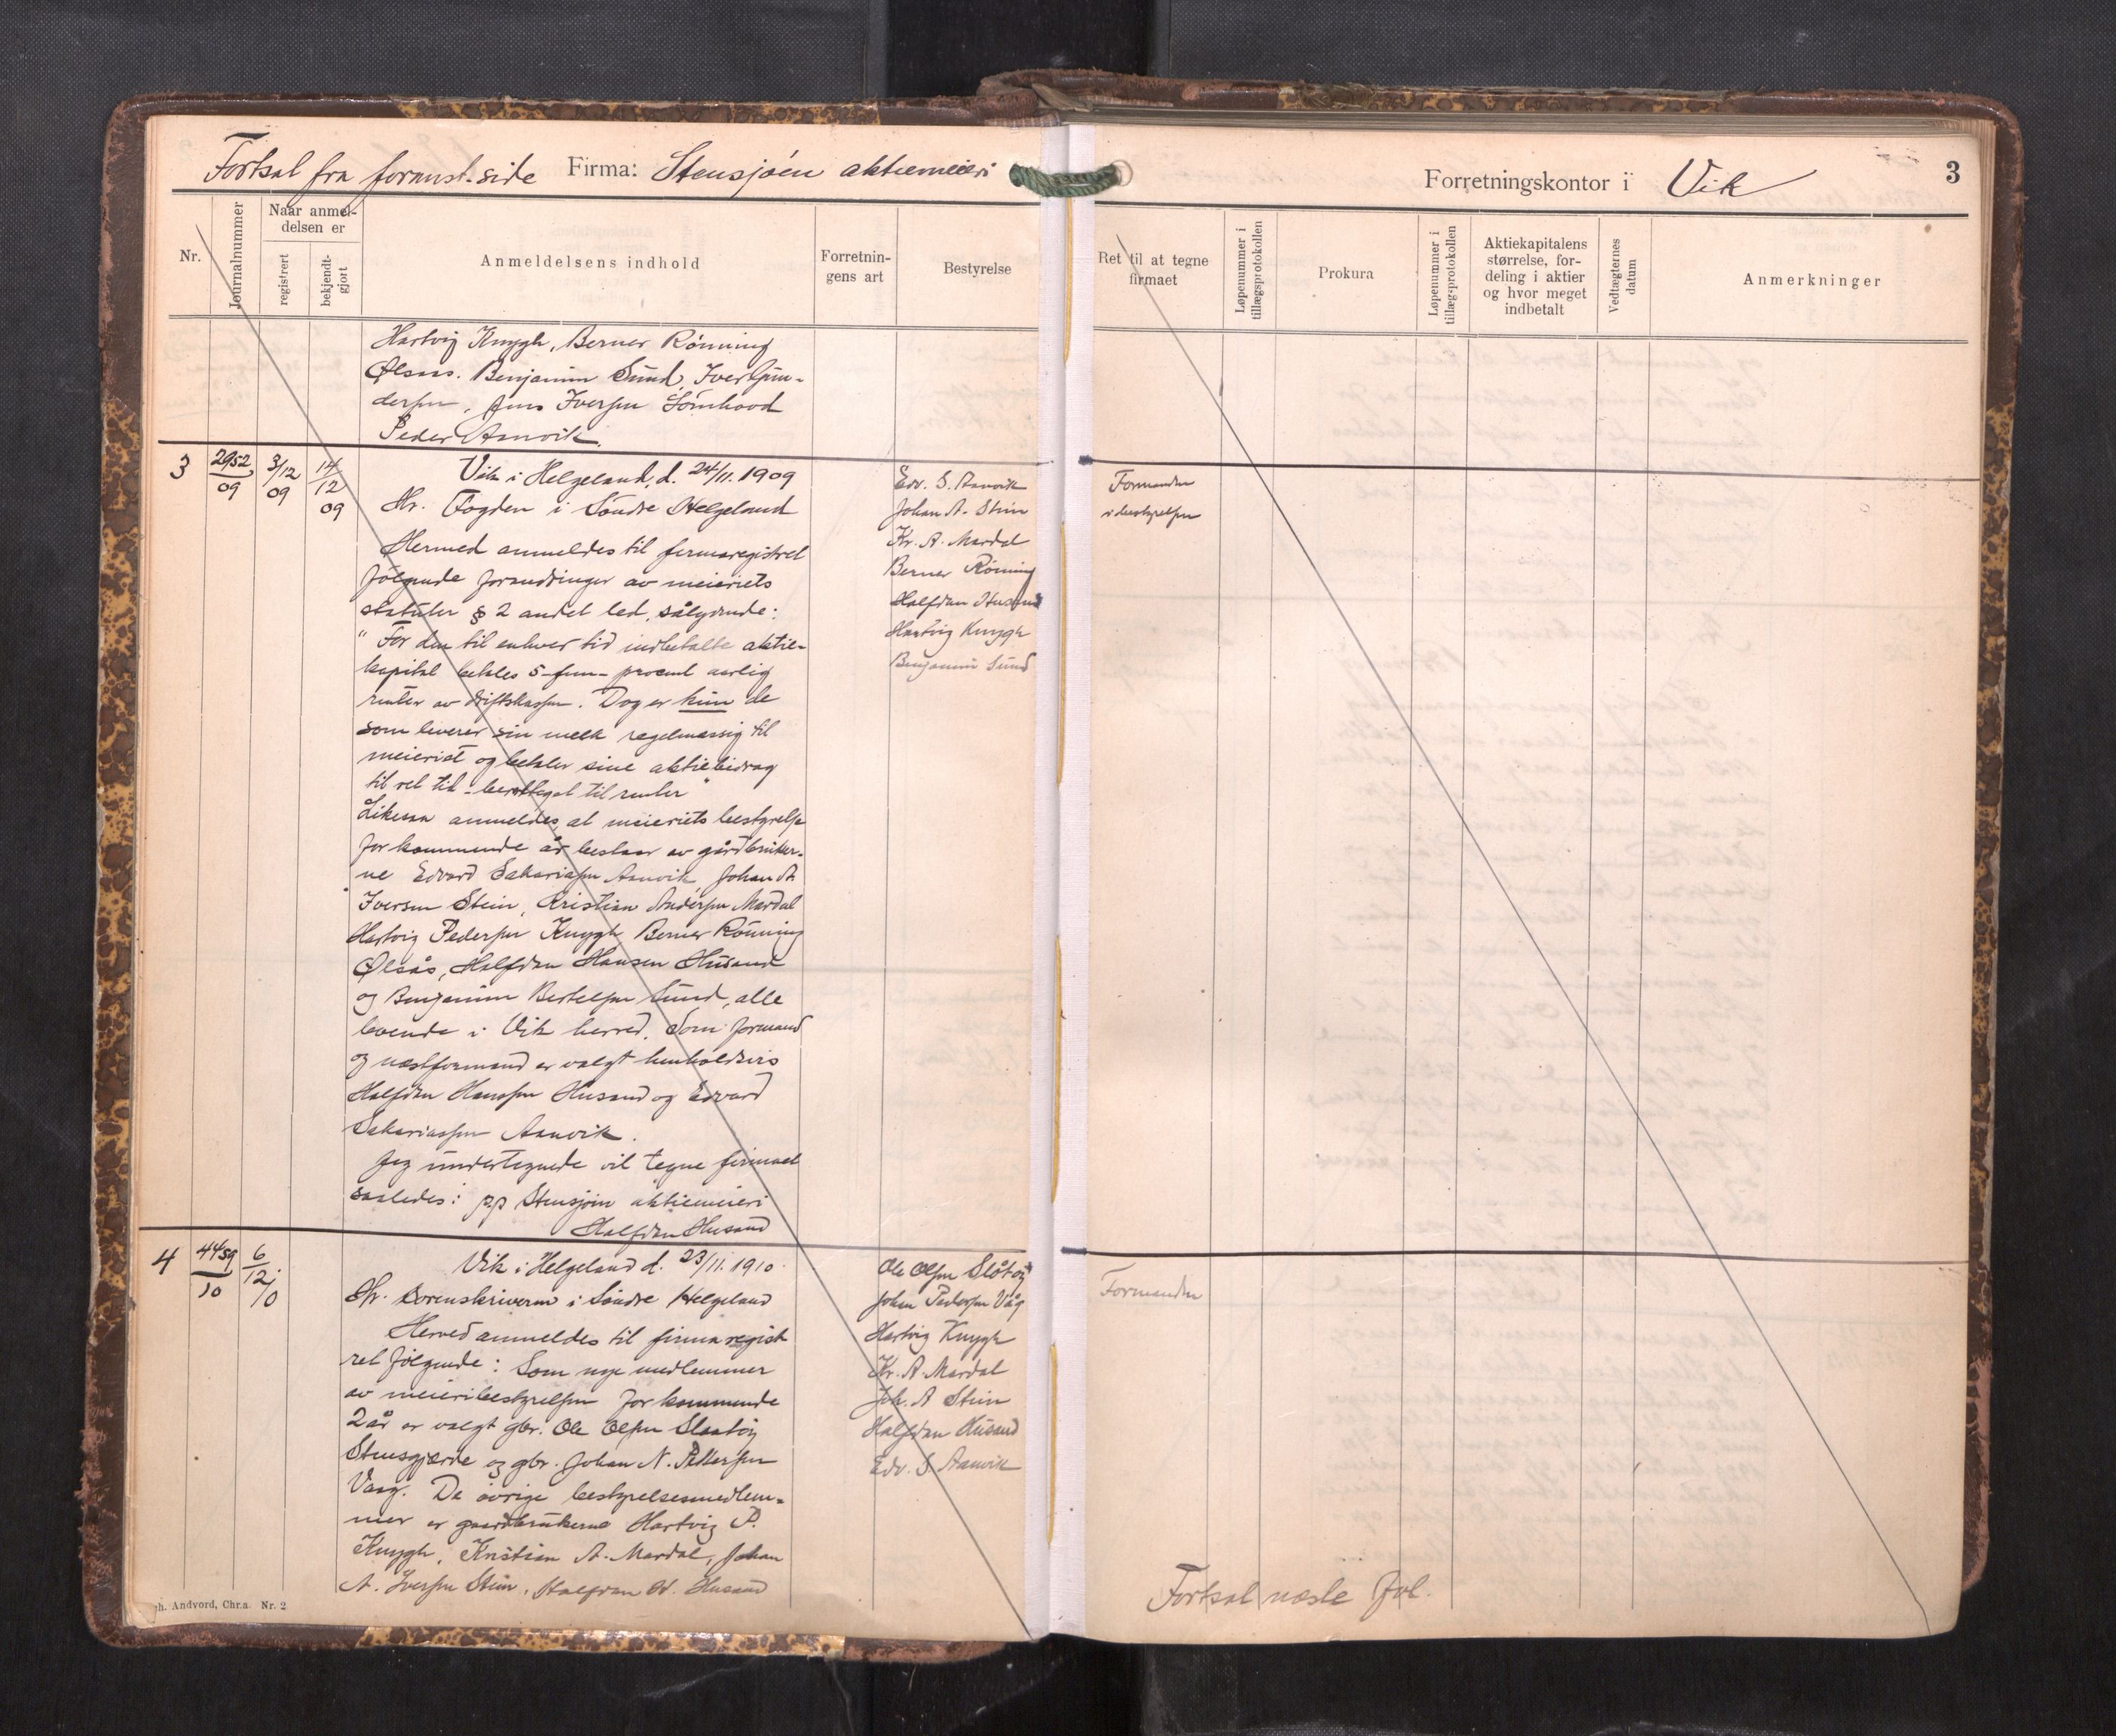 Fortsat fra foranst. side Firma: Stensjøen aktiemeieri
Forretningskontor i Vik
3
Nr.
Journalnummer
Naar anmel-
delsen er
registrert
bekjendt-
gjort
Anmeldelsens indhold
Forretnin-
gens art
Bestyrelse
Ret til at tegne
firmaet
Løpenummer i
tillægsprotokollen
Prokura
Løpenummer i
tillægsprotokollen
Aktiekapitalens
størrelse, for-
deling i aktier
og hvor meget
indbetalt
Vedtægternes
datum
Anmerkninger
Hartvig Knygh, Berner Rönning
Ølsaas. Benjamin Sund, Iver Gun-
dersen, Jens Iversen Sömhovd
Peder Aanvik.
3
2952/09
3/12 09
14/12 09
Vik i Helgeland, d. 24/11. 1909
Hr. Fogden i Söndre Helgeland
Hermed anmeldes til firmaregistret
følgende forandringer av meieriets
statuter § 2 andet led, sålydende:
"For den til enhver tid indbetalte aktie-
kapital betales 5-fem- procent aarlig
renter av driftskassen. Dog er kun de
som leverer sin melk regelmæssig til
meieriet og betaler sine aktiebidrag
til ret tid - berettiget til renter"
Likesaa anmeldes, at meieriets bestyrelse
for kommende år bestaar av gårdbruker-
ne Edvard Sakariasen Aanvik, Johan A.
Iversen Stein, Kristian Andersen Mardal
Hartvig Pedersen Knygh Berner Rönning
Ølsås, Halfdan Hansen Husand
og Benjamin Bertelsen Sund, alle
boende i Vik herred. Som formand
og næstformand er valgt henholdsvis
Halfdan Hanssen Husand og Edvard
Sakariassen Aanvik.
Jeg undertegnede vil tegne firmaet
saaledes: pp Stensjöen aktiemeieri
Halfdan Husand
Edv. S. Aanvik
Johan A. Stein
Kr. A. Mardal
Berner Röning
Halfdan Husand
Hartvig Knygh
Benjamin Sund
Formanden
i bestyrelsen
4
4459/10
6/12 10
Vik i Helgeland d. 23/11. 1910.
Hr. Sorenskriveren i Söndre Helgeland
Herved anmeldes til firmaregist
ret følgende: Som nye medlemmer
av meieribestyrelsen for kommende
2 år er valgt gbr. Ole Olsen Slaatöy
Stensgjærde og gbr. Johan N. Pettersen
Vaag. De övrige bestyrelsesmedlem-
mer er gaardbrukerne Hartvig P.
Knygh, Kristian A. Mardal, Johan
A. Iversen Stein, Halfdan H. Husand
Ole Olsen Slåtöy
Johan Pedersen Våg
Hartvig Knygh
Kr. A. Mardal
Joh. A Stein
Halfdan Husand
Edv. S. Aanvik
Formanden
Fortsat næste fol.
h. Andvord, Chr.a. Nr. 2